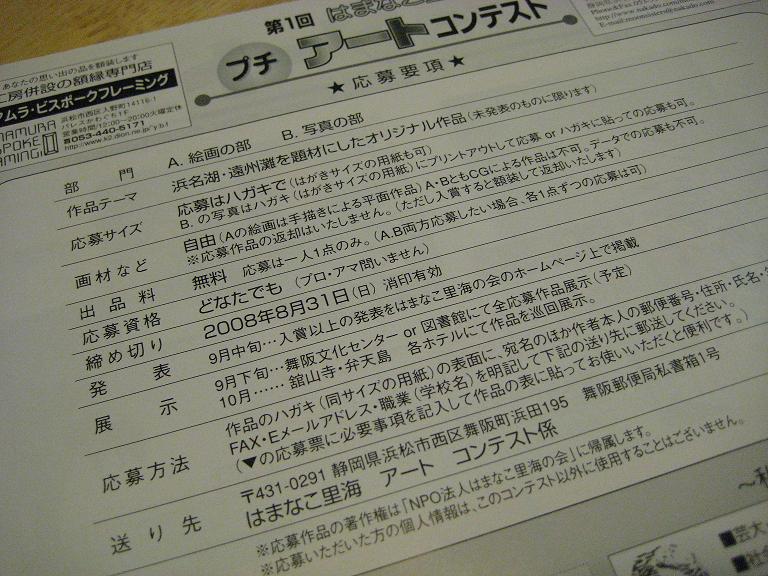 第1回 はまなこ
プチ アートコンテスト
★応募要項★
あなたの思い出の品を額装します
工房併設の額縁専門店
ムラ・ビスポークフレーミング
浜松市西区入野町14116-1
パレスかわぐち1F
営業時間/12:00～20:00火曜定休
☎053-440-5171
部門 A. 絵画の部 B. 写真の部
作品テーマ 浜名湖・遠州灘を題材にしたオリジナル作品(未発表のものに限ります)
応募サイズ 応募はハガキで(はがきサイズの用紙も可)
B. の写真はハガキ(はがきサイズの用紙)にプリントアウトして応募 or ハガキに貼っての応募も可。
画材など 自由(Aの絵画は手描きによる平面作品)A・BともCGによる作品は不可。データでの応募も不可。
※応募作品の返却はいたしません。(ただし入賞すると額装して返却いたします)
出品料 無料 応募は一人1点のみ。(A.B両方応募したい場合、各1点ずつの応募は可)
応募資格 どなたでも(プロ・アマ問いません)
締め切り 2008年8月31日(日)消印有効
発表 9月中旬…入賞以上の発表をはまなこ里海の会のホームページ上で掲載
展示 9月下旬…舞阪文化センター or 図書館にて全応募作品展示(予定)
10月……舘山寺・弁天島 各ホテルにて作品を巡回展示。
応募方法 作品のハガキ(同サイズの用紙)の表面に、宛名のほか作者本人の郵便番号・住所・氏名・
FAX・Eメールアドレス・職業(学校名)を明記して下記の送り先に郵送してください。
(▼の応募票に必要事項を記入して作品の表に貼ってお使いいただくと便利です。)
送り先 〒431-0291 静岡県浜松市西区舞阪町浜田195 舞阪郵便局私書箱1号
はまなこ里海 アート コンテスト係
※応募作品の著作権は「NPO法人はまなこ里海の会」に帰属します。
※応募いただいた方の個人情報は、このコンテスト以外に使用することはございません。
■芸大
■社会